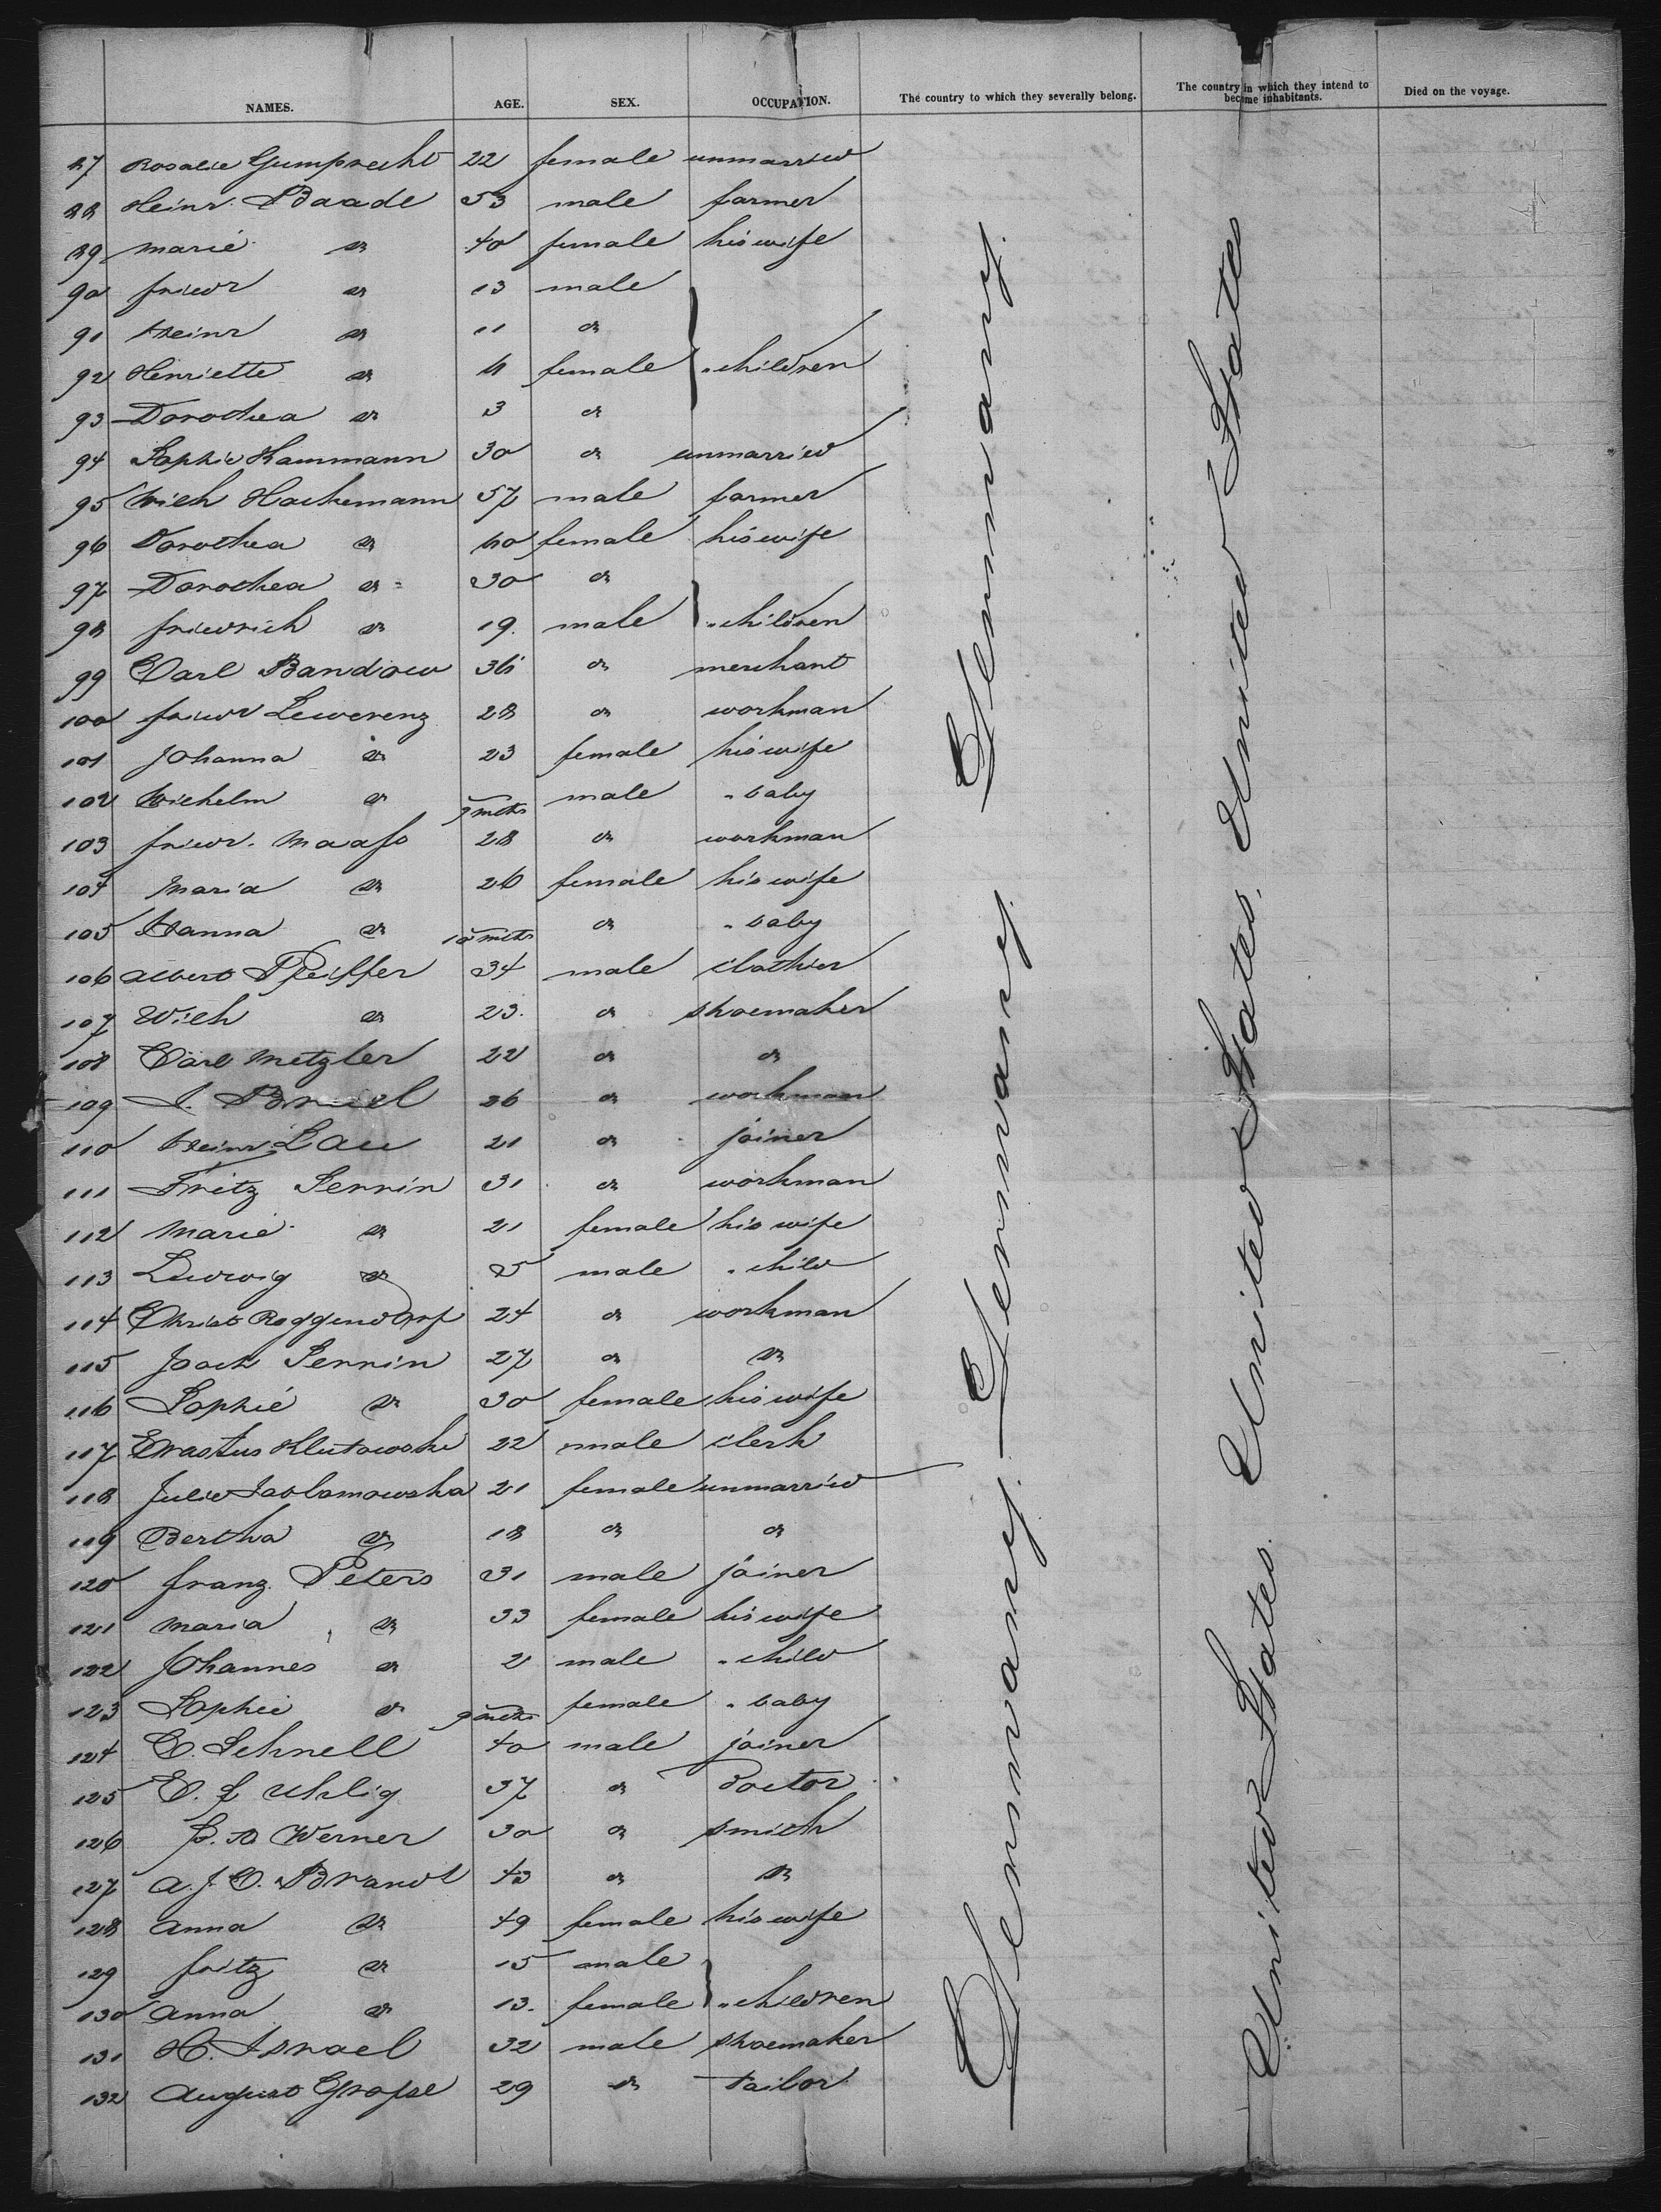 NAMES. AGE. SEX. OCCUPATION. The country to which they severally belong. The country in which they intend to become inhabitants. Died on the voyage.
87 Rosalie Gumprecht 22 female unmarried
88 Heinr. Baade 53 male farmer
89 Marie do 40 female his wife
90 Friedr do 13 male
91 Heinr do 11 do
92 Henriette do 4 female " children
93 Dorothea do 3 do
94 Sophie Hammann 30 do unmarried
95 Wilh Hackemann 57 male farmer
96 Dorothea do 40 female his wife
97 Dorothea do 30 do
98 Friedrich do 19. male " children
99 Carl Bandow 36 do merchant
100 Friedr Lewerenz 28 do workman
101 Johanna do 23 female his wife
102 Wilhelm do 9 mths male " baby
103 Friedr. Maaß 28 do workman
104 Maria do 26 female his wife
105 Hanna do 10 mths do " baby
106 Albert Pfeiffer 34 male clothier
107 Wilh do 23. do shoemaker
108 Carl Metzler 22 do do
109 J. Bruel 26 do workman
110 Heinr Lau 21 do joiner
111 Fritz Serrin 31 do workman
112 Marie do 21 female his wife
113 Ludwig do 5 male " child
114 Christ Roggendorf 24 do workman
115 Joach Serrin 27 do do
116 Sophie do 30 female his wife
117 Erastus Klutowski 22 male clerk
118 Julie 21 female unmarried
119 Bertha do 18 do do
120 Franz Peters 31 male joiner
121 Maria do 33 female his wife
122 Johannes do 2 male " child
123 Sophie do 9 mths female " baby
124 C. Schnell 40 male joiner
125 C. F Uhlig 37 do Doctor
126 Werner 30 do smith
127 A. J. C. Brandt 43 do do
128 Anna do 49 female his wife
129 Fritz do 15 male
130 Anna do 13. female " children
131 H. Israel 32 male shoemaker
132 August Große 29 do tailor
Germany. Germany. Germany.
United States. United States. United States